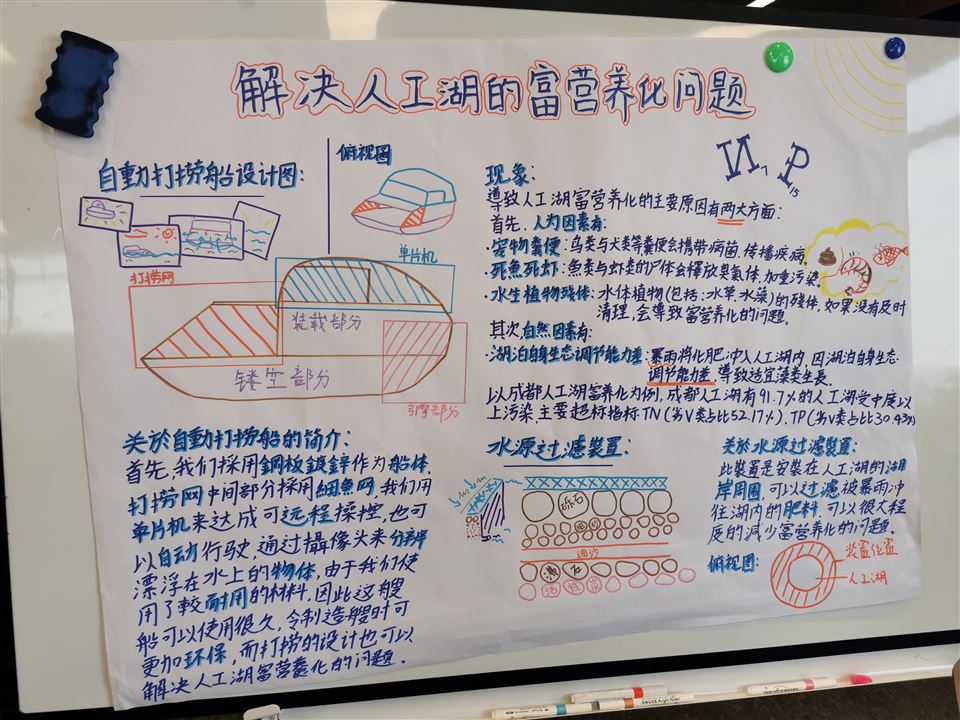 解决人工湖的富营养化问题
自動打捞船设计图:
俯视图
单片机
打捞网
装载部分
镂空部分
引擎部分
关於自動打捞船的简介:
首先,我们採用鋼板鍍鋅作为船体,
打捞网中间部分採用細魚网,我们用
单片机来达成可远程操控,也可
以自动行驶,通过攝像头来分辨
漂浮在水上的物体,由于我们使
用了較耐用的材料,因此这艘
船可以使用很久,令制造艘时可
更加环保,而打捞的设计也可以
解决人工湖富营養化的问题.
N, P
15
现象:
導致人工湖富营养化的主要原因有两大方面:
首先,人为因素有:
·宠物糞便:鸟类与犬类等糞便会携带病菌,传播疾病,
·死魚死虾:魚类与虾类的尸体会释放臭氣体,加重污染,
·水生植物残体:水体植物(包括:水草.水藻)的残体,如果没有及时
清理,会導致富营养化的问题,
其次自然因素有:
·湖泊自身生态调节能力差:暴雨将化肥冲入人工湖内,因湖泊自身生态
调节能力差,導致适宜藻类生長.
以成都人工湖富养化为例,成都人工湖有91.7%的人工湖受中度以
上污染,主要超标指标TN(劣V类占比52.17%),TP(劣V类占比30.43%)
水源过濾裝置:
砾石
細沙
活性炭
关於水源过濾裝置:
此裝置是安裝在人工湖的湖
岸周圍,可以过滤被暴雨冲
住湖内的肥料,可以很大程
度的減少富营养化的问题.
俯视图:
装置位置
人工湖